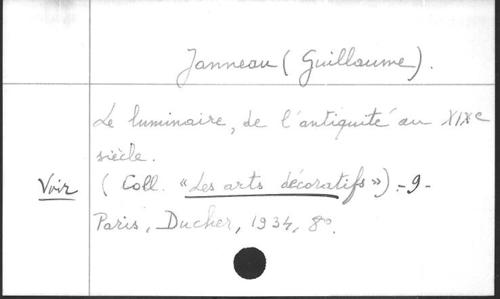 Janneau (Guillaume).
Le luminaire, de l'antiquité au XIXe
siècle.
Voir (Coll. "Les arts décoratifs"). - 9 -
Paris, Ducher, 1934, 8°.